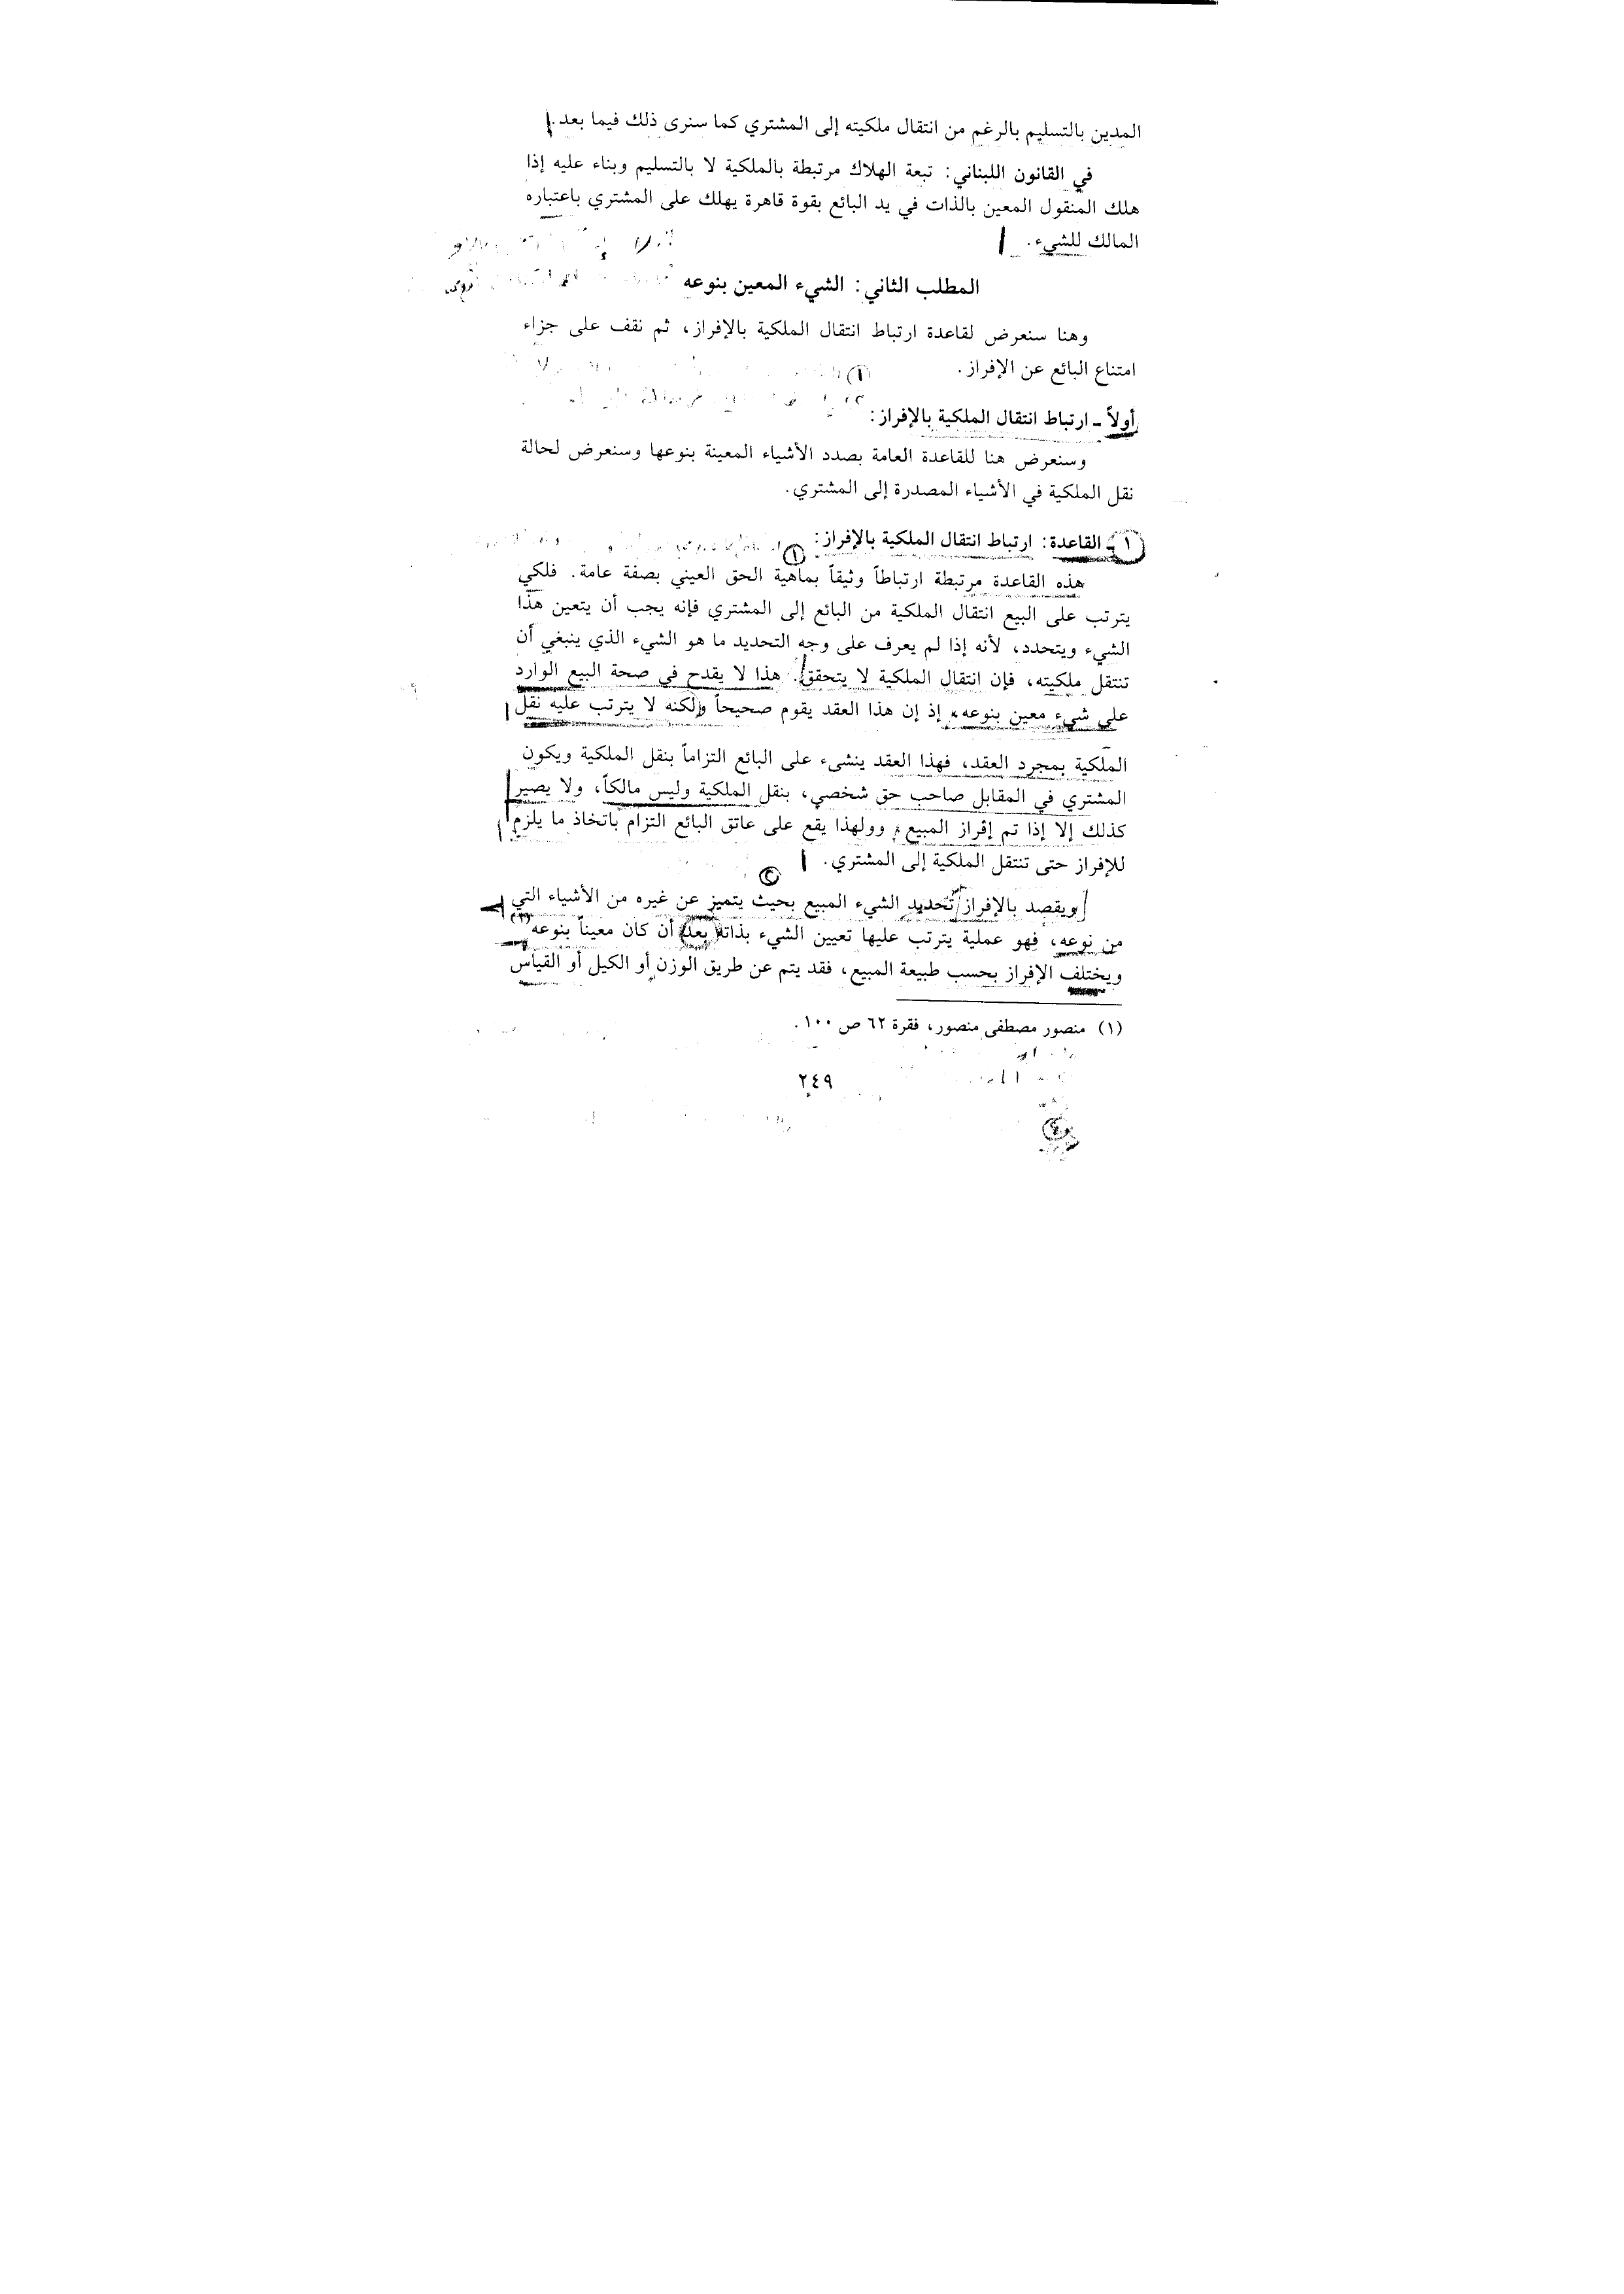 المدين بالتسليم بالرغم من انتقال ملكيته إلى المشتري كما سنرى ذلك فيما بعد.
في القانون اللبناني: تبعة الهلاك مرتبطة بالملكية لا بالتسليم وبناء عليه إذا
هلك المنقول المعين بالذات في يد البائع بقوة قاهرة يهلك على المشتري باعتباره
المالك للشيء.
المطلب الثاني: الشيء المعين بنوعه
وهنا سنعرض لقاعدة ارتباط انتقال الملكية بالإفراز، ثم نقف على جزاء
امتناع البائع عن الإفراز.
أولاً ـ ارتباط انتقال الملكية بالإفراز:
وسنعرض هنا للقاعدة العامة بصدد الأشياء المعينة بنوعها وسنعرض لحالة
نقل الملكية في الأشياء المصدرة إلى المشتري.
١ ـ القاعدة: ارتباط انتقال الملكية بالإفراز:
هذه القاعدة مرتبطة ارتباطاً وثيقاً بماهية الحق العيني بصفة عامة. فلكي
يترتب على البيع انتقال الملكية من البائع إلى المشتري فإنه يجب أن يتعين هذا
الشيء ويتحدد، لأنه إذا لم يعرف على وجه التحديد ما هو الشيء الذي ينبغي أن
تنتقل ملكيته، فإن انتقال الملكية لا يتحقق. هذا لا يقدح في صحة البيع الوارد
على شيء معين بنوعه، إذ إن هذا العقد يقوم صحيحاً ولكنه لا يترتب عليه نقل
الملكية بمجرد العقد، فهذا العقد ينشىء على البائع التزاماً بنقل الملكية ويكون
المشتري في المقابل صاحب حق شخصي، بنقل الملكية وليس مالكاً، ولا يصير
كذلك إلا إذا تم إفراز المبيع، وولهذا يقع على عاتق البائع التزام باتخاذ ما يلزم
للإفراز حتى تنتقل الملكية إلى المشتري.
ويقصد بالإفراز تحديد الشيء المبيع بحيث يتميز عن غيره من الأشياء التي
من نوعه، فهو عملية يترتب عليها تعيين الشيء بذاته بعد أن كان معيناً بنوعه(١)
ويختلف الإفراز بحسب طبيعة المبيع، فقد يتم عن طريق الوزن أو الكيل أو القياس
(١) منصور مصطفى منصور، فقرة ٦٢ ص ١٠٠.
٢٤٩